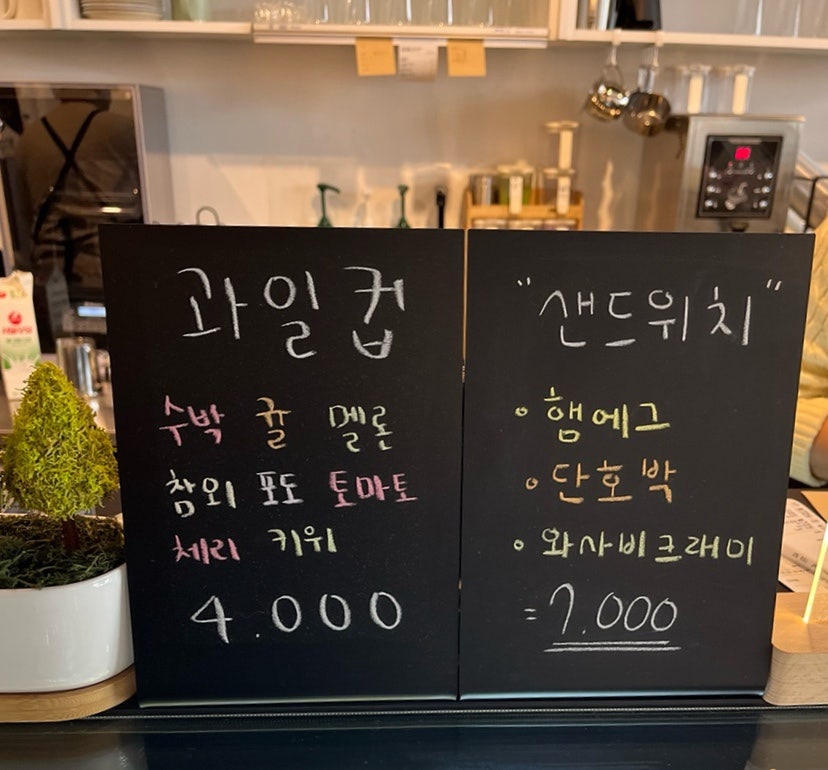 과일컵
수박 귤 멜론
참외 포도 토마토
체리 키위
4.000
"샌드위치"
• 햄에그
• 단호박
• 와사비크래미
= 7.000